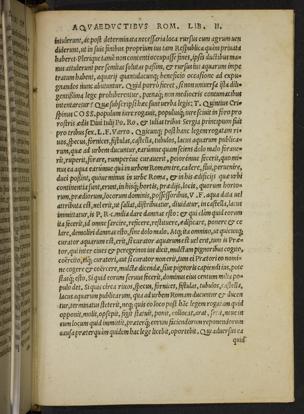 AQVAEDVCTIBVS ROM. LIB. II.
inuiderunt, & post determinata necessaria loca rursus cum agrum uen
diderunt, ut in suis finibus proprium ius tam Respublica quàm priuata
haberet. Pleriq; tamen non contenti occupasse fines, ipsis ductibus ma-
nus attulerunt per
tratum habent, aquarij quantulacunq; beneficio occasione ad expu-
gnandos nunc abutuntur. Quid porro fieret, si non uniuersa ista dili-
gentissima lege prohiberentur, poenaq; non mediocris contumacibus
intentaretur? Quæ subscripsi hæc sunt uerba legis: T. Quintius Cri
spinus COSS. populum iure rogauit, populusq; iure sciuit in foro pro
rostris ædis Diui Iulij
pro tribu sex. L. F. Varro. Quicunq; post hanc legem rogatam ri-
uos, specus, fornices, fistulas, castella, lacus aquarum publica-
rum, quæ ad urbem ducuntur, sciens dolo malo forauerit
ruperit,
nus ea aqua in urbem Romam ire, cadere, fluere, peruenire,
duci possint, quiue minus in urbe Roma, & in his ædificijs quæ urbi
continentia sunt, erunt, in hisq; hortis, prædijs, locis, quorum horto-
rum, prædiorum, locorum dominis, possessoribus, V. F. aqua data uel
attributa est, uel erit, saliat, distribuatur, diuidatur, in castella, lacus
immittatur, is P. R. dare damnas esto: & qui clàm quid eorum
ita fecerit, id omne sarcire, reficere, restituere, ædificare, ponere & ce
lare, demolire damnas esto, sine dolo malo. Atq; ita omnino, ut quicunq;
curator aquarum est, erit, si curator aquarum erit, tum is Præ-
tor, qui inter ciues & peregrinos ius dicit, multam pignoribus cogito,
coërcito, curatori, aut si curator non erit, tum ei Prætori eo nomi-
ne cogere & coërcere, multæ dicendæ, siue pignoris capiendi ius, pote
statq; esto. Si quid eorum seruus fecerit, dominus eius centum milia po
pulo det. Si qui circa riuos, specus, fornices, fistulas, tubulos, castella,
lacus aquarum publicarum, quæ ad urbem Romam ducuntur & ducen
tur, terminatus steterit, neq; quis in eo loco post hanc legem rogatam quid
opponit, molit, obsepit, figit, statuit, ponit, collocat, arat, serit, neue in
eum locum quid immittit, præterq; eorum faciendorum reponendorum
causa præterquàm quidem hac lege licebit, oportebit. Qui aduersus ea
quid